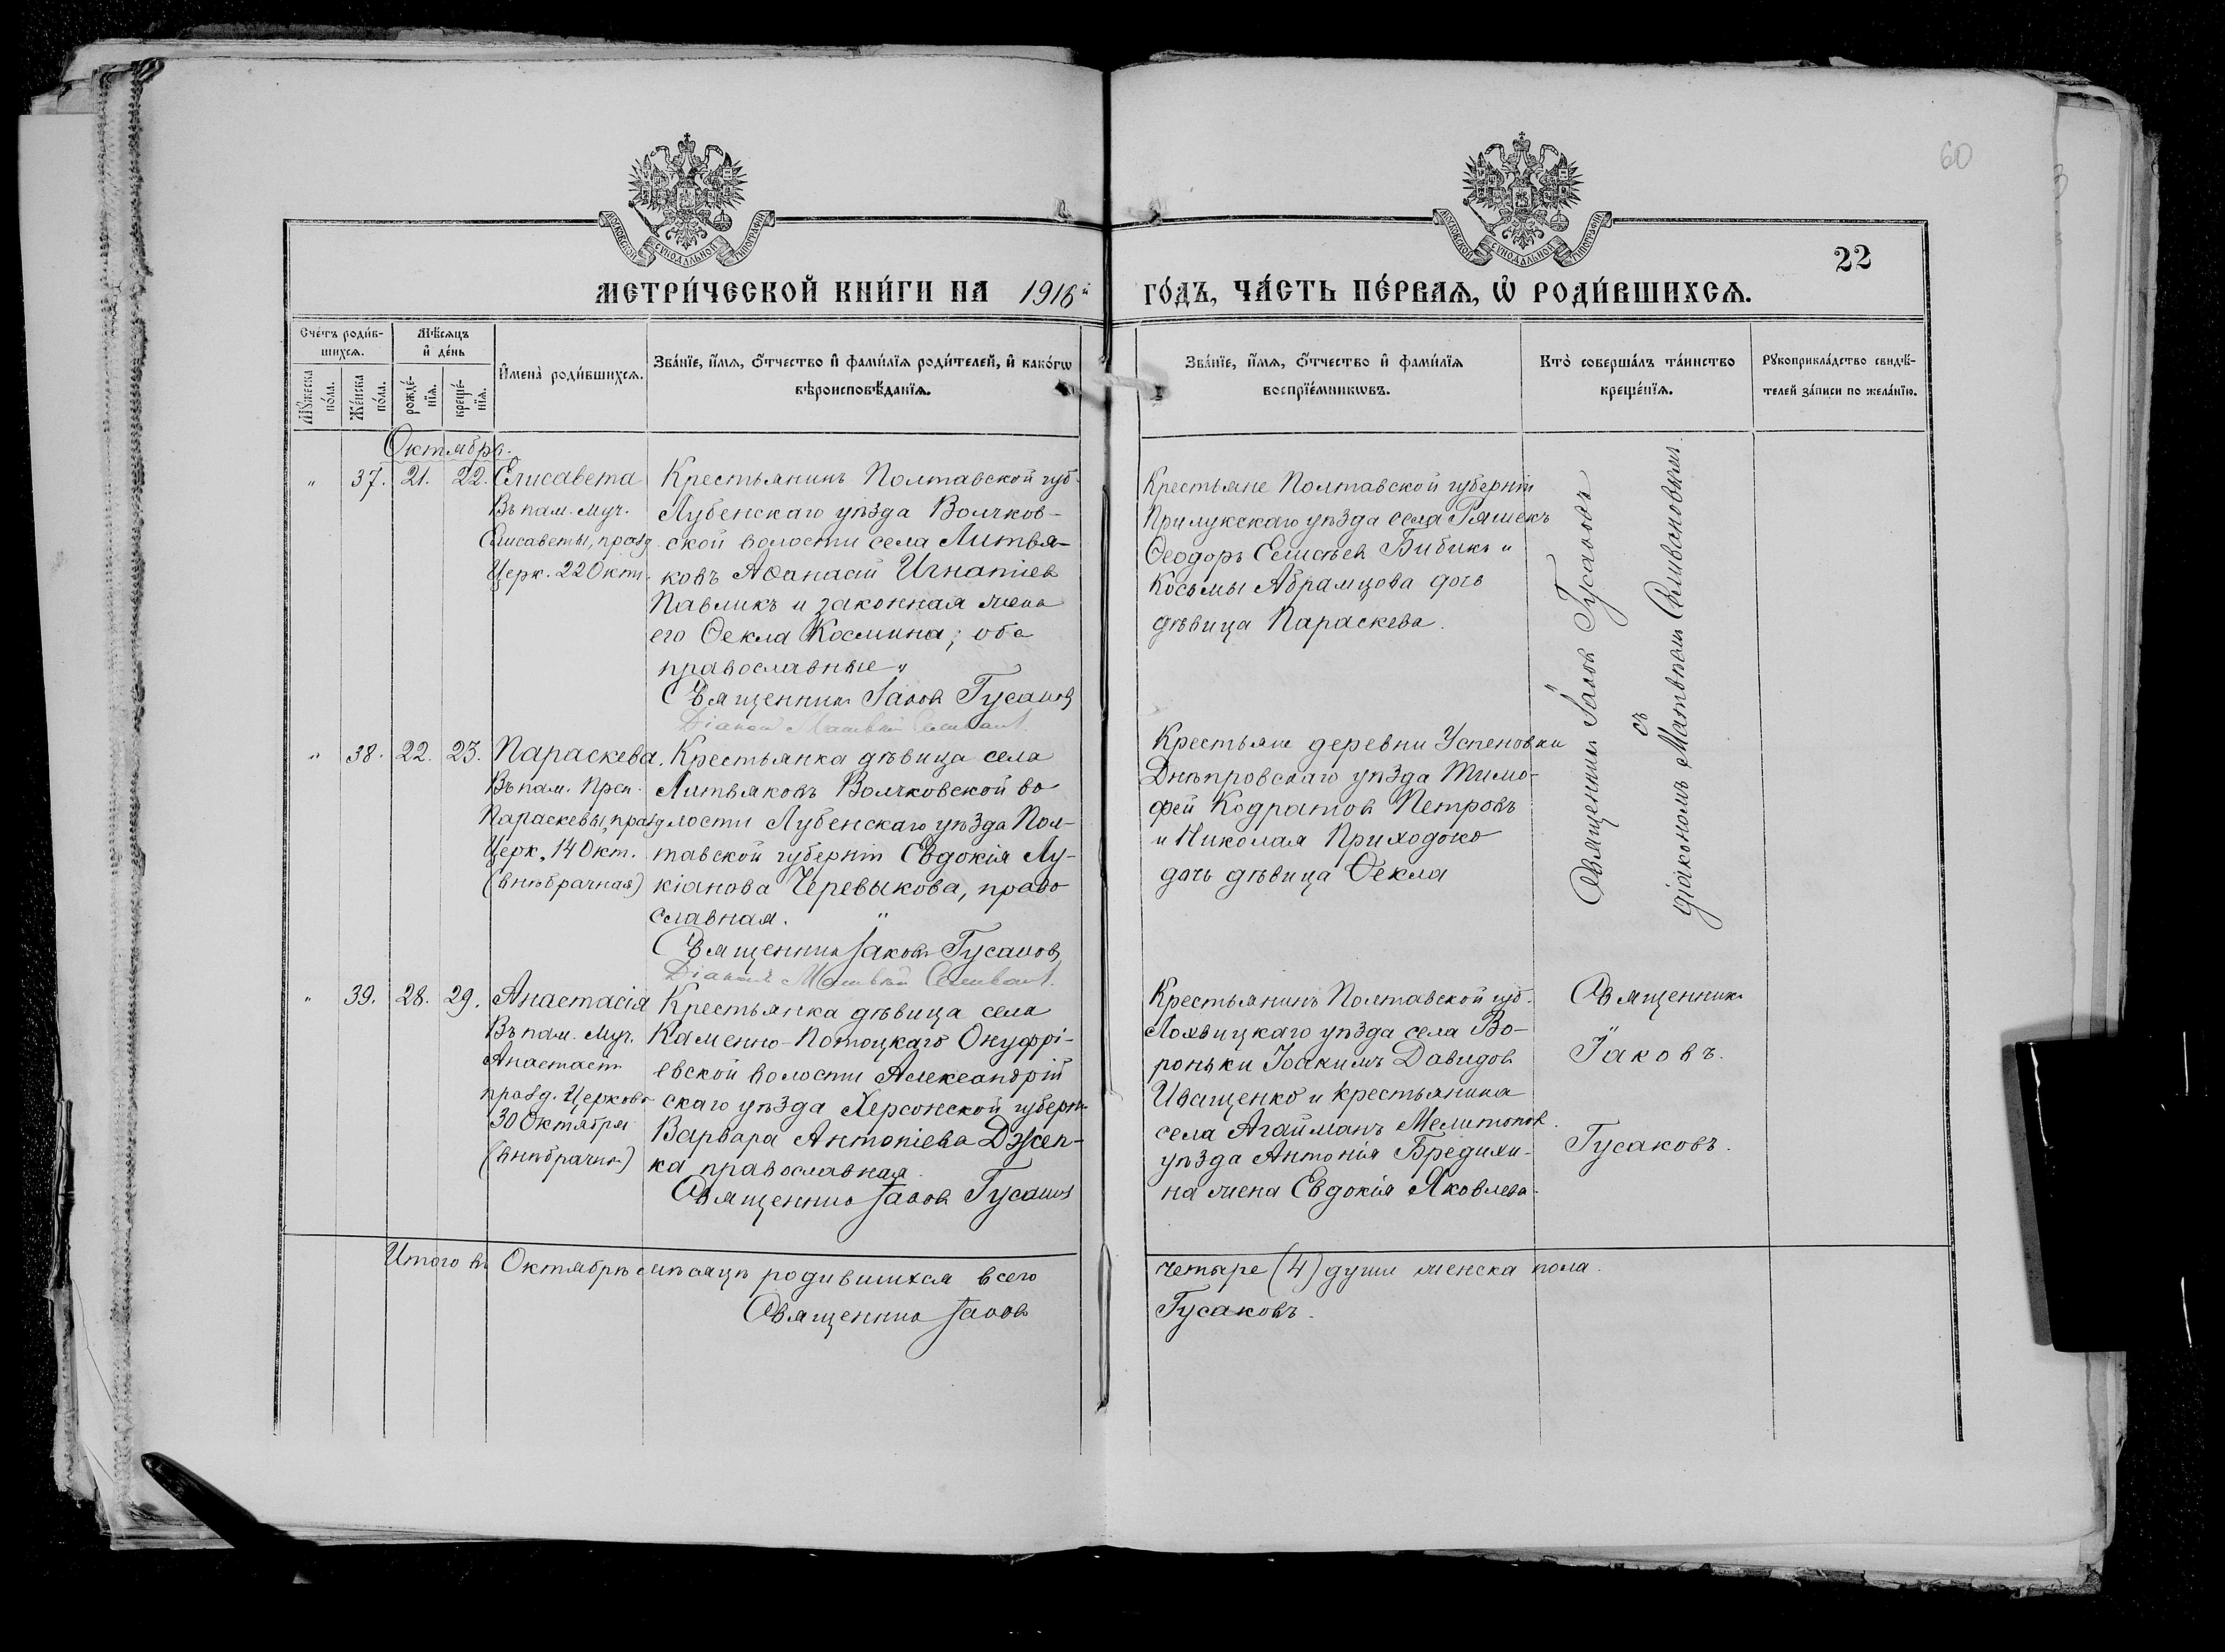 60
22
МОСКОВСКОЙ СѴНОДАЛЬНОЙ ТИПОГРАФІИ
МОСКОВСКОЙ СѴНОДАЛЬНОЙ ТИПОГРАФІИ
МЕТРИ́ЧЕСКОЙ КНИ́ГИ НА 1916й ГО́ДЪ, ЧА́СТЬ ПЕ́РВАѦ, Ѡ҆ РОДИ́ВШИХСѦ.
Сче́тъ роди́в-
шихсѧ.
Мꙋ́жеска
по́ла.
Же́нска
по́ла.
Мѣ́сѧцъ
и҆ де́нь
рожде́-
нїѧ.
креще́-
нїѧ.
И҆мена̀ роди́вшихсѧ.
Зва́нїе, и҆́мѧ, ѻ҆́тчество и҆ фами́лїѧ роди́телей, и҆ како́гѡ
вѣроисповѣ́данїѧ.
Зва́нїе, и҆́мѧ, ѻ҆́тчество и҆ фами́лїѧ
воспрїе́мникѡвъ.
Кто̀ соверша́лъ та́инство
креще́нїѧ.
Рꙋкоприкла́дство свидѣ́-
телей за́писи по жела́нїю.
Октября.
" 37. 21. 22. Елисавета
Въ пам. муч.
Елисаветы, празд.
Церк. 22 Окт.
Крестьянинъ Полтавской губ.
Лубенскаго уѣзда Волчков-
ской волости села Литвя-
ковъ Аѳанасій Игнатіев
Павликъ и законная жена
его Ѳекла Космина; оба
православные "
Священникъ Іаков Гусаков
Діакон Матвѣй Селиванов.
Крестьяне Полтавской губерніи
Прилукскаго уѣзда села Ряшекъ
Ѳеодоръ Елисѣев Бибикъ и
Косьмы Абрамцова дочь
дѣвица Параскева.
Священникъ Іаков Гусаковъ
съ
діакономъ Матвѣемъ Селивановымъ.
" 38. 22. 23. Параскева.
Въ пам. Преп.
Параскевы, празд.
Церк. 14 Окт.
(внѣбрачная)
Крестьянка дѣвица села
Литвяковъ Волчковской во
лости Лубенскаго уѣзда Пол-
тавской губерніи Евдокія Лу-
кіанова Черевыкова, право
славная. "
Священникъ Іаковъ Гусаков
Діаконъ Матвѣй Селиванов.
Крестьяне деревни Успеновки
Днѣпровскаго уѣзда Тимо-
фей Кодратов Петровъ
и Николая Приходько
дочь дѣвица Ѳекла
" 39. 28. 29. Анастасія
Въ пам. Муч.
Анастасіи
празд. Церковь
30 Октября
(внѣбрачн.)
Крестьянка дѣвица села
Каменно-Потоцкаго Онуфрі-
евской волости Александрій
скаго уѣзда Херсонской губерн.
Варвара Антоніева Джеп-
ка православная.
Священникъ Іаков Гусаков
Крестьянинъ Полтавской губ.
Лохвицкаго уѣзда села Во-
роньки Іоакимъ Давидов
Иващенко и крестьянина
села Агайманъ Мелитопол.
уѣзда Антонія Бредихи-
на жена Евдокія Яковлева.
Священникъ
Іаковъ.
Гусаковъ.
Итого въ Октябрѣ мѣсяцѣ родившихся всего четыре (4) души женска пола.
Священникъ Іаков Гусаковъ.